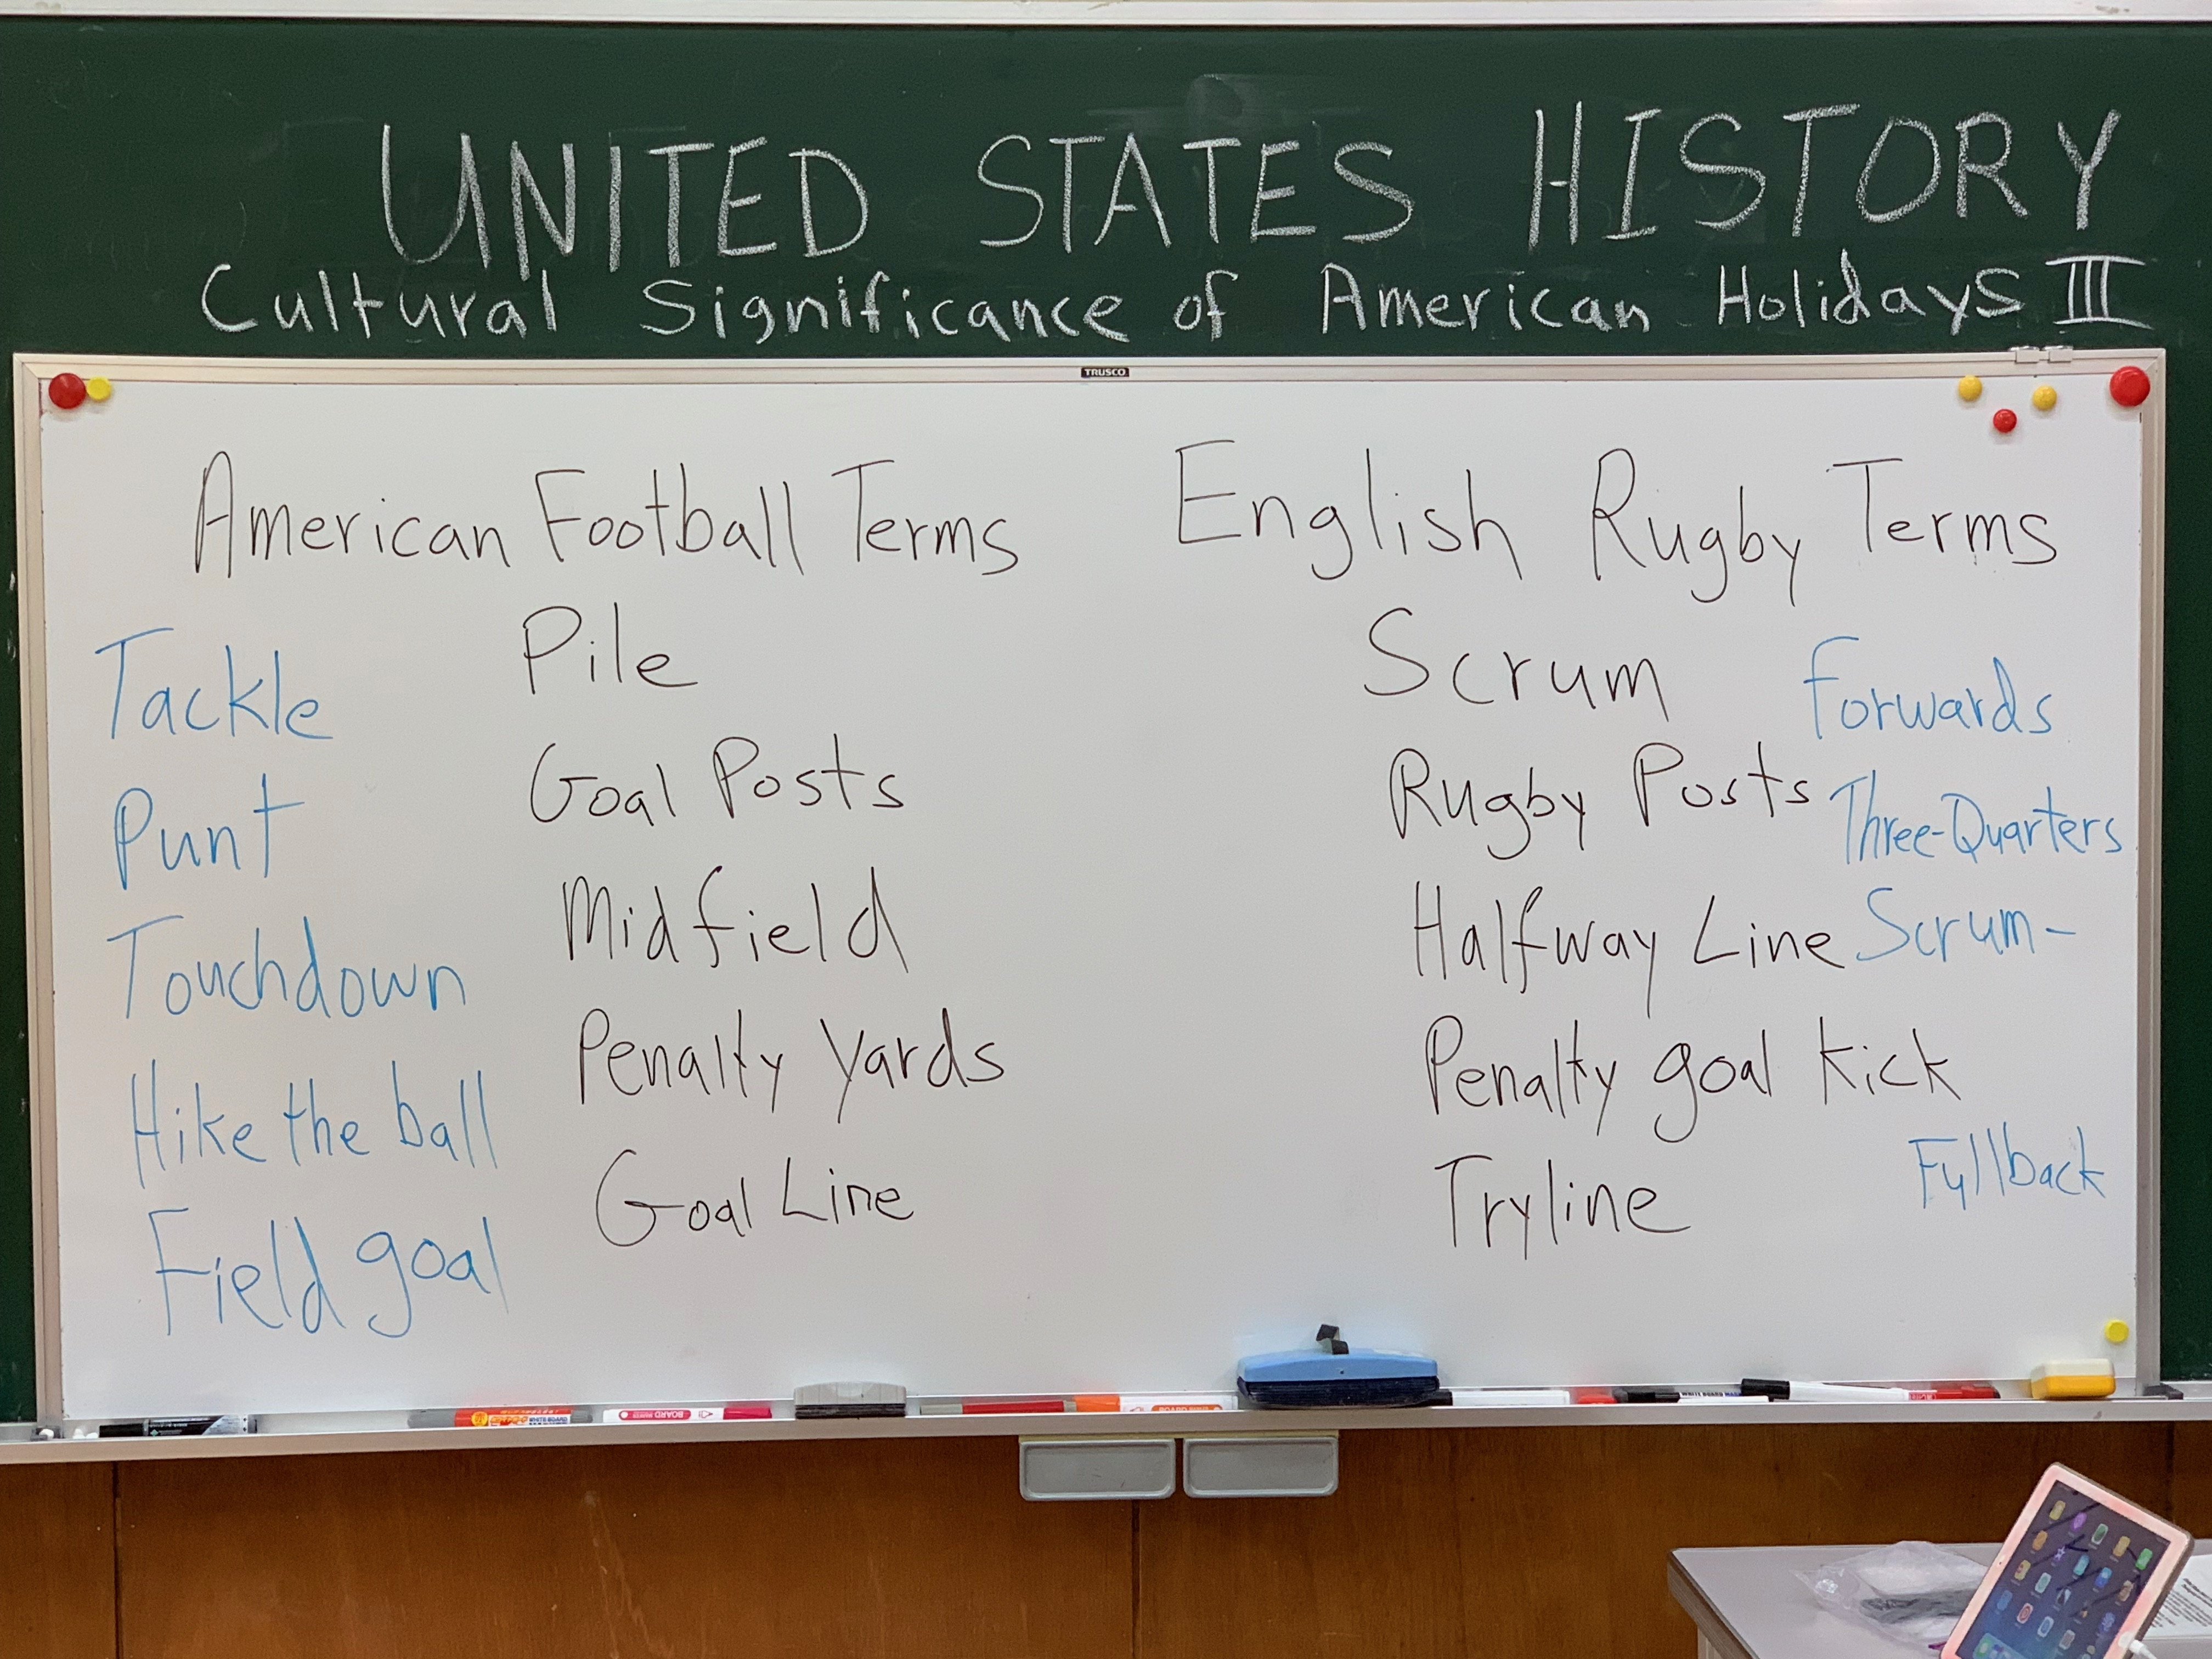 UNITED STATES HISTORY
Cultural Significance of American Holidays III
TRUSCO
American Football Terms
English Rugby Terms
Tackle
Punt
Touchdown
Hike the ball
Field goal
Pile
Goal Posts
Midfield
Penalty Yards
Goal Line
Scrum
Rugby Posts
Halfway Line
Penalty goal kick
Tryline
Forwards
Three-Quarters
Scrum-
Fullback
WHITE BOARD
BOARD